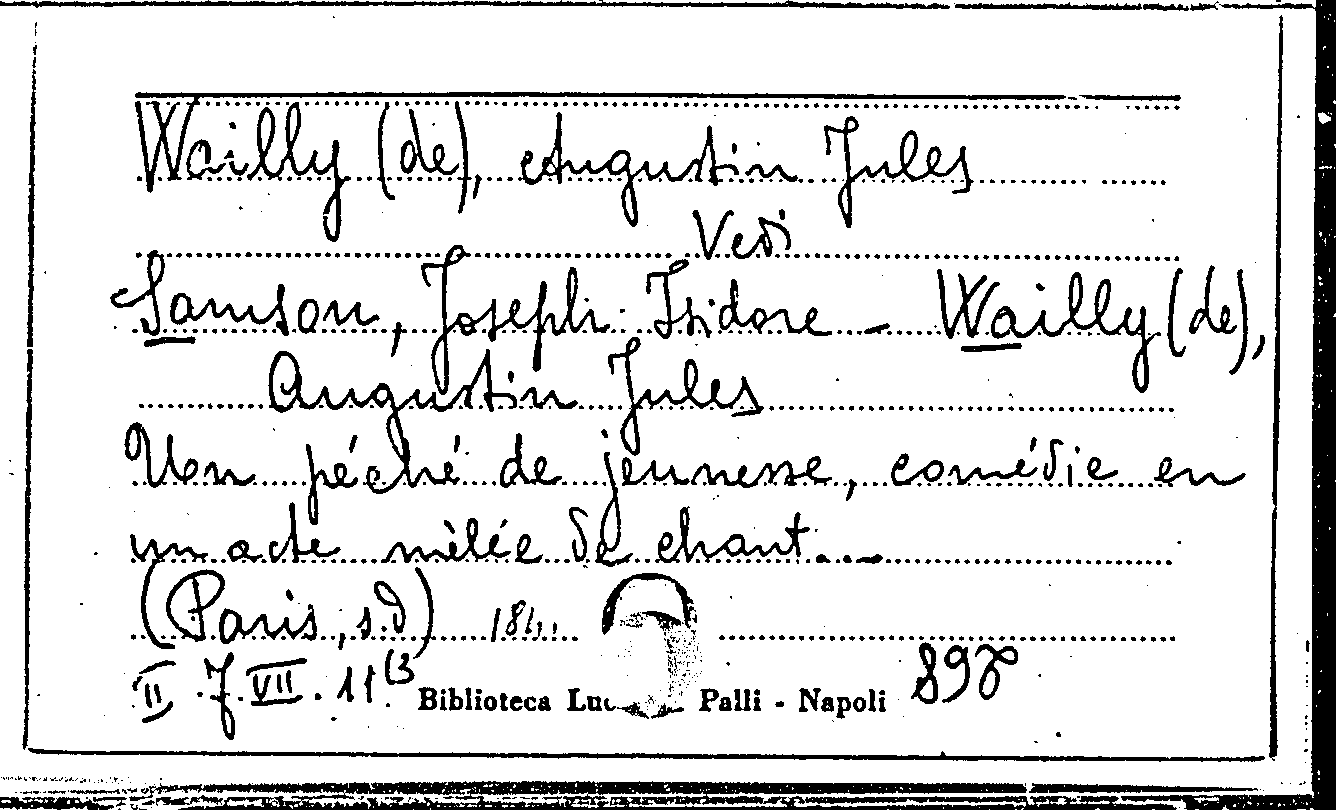 Wailly (de), Augustin Jules
Vedi
Samson, Joseph Isidore - Wailly (de),
Augustin Jules
Un péché de jeunesse, comédie en
un acte mêlée de chant...
(Paris, s.d)
II. J. VII. 11 (3
Biblioteca Palli - Napoli 898